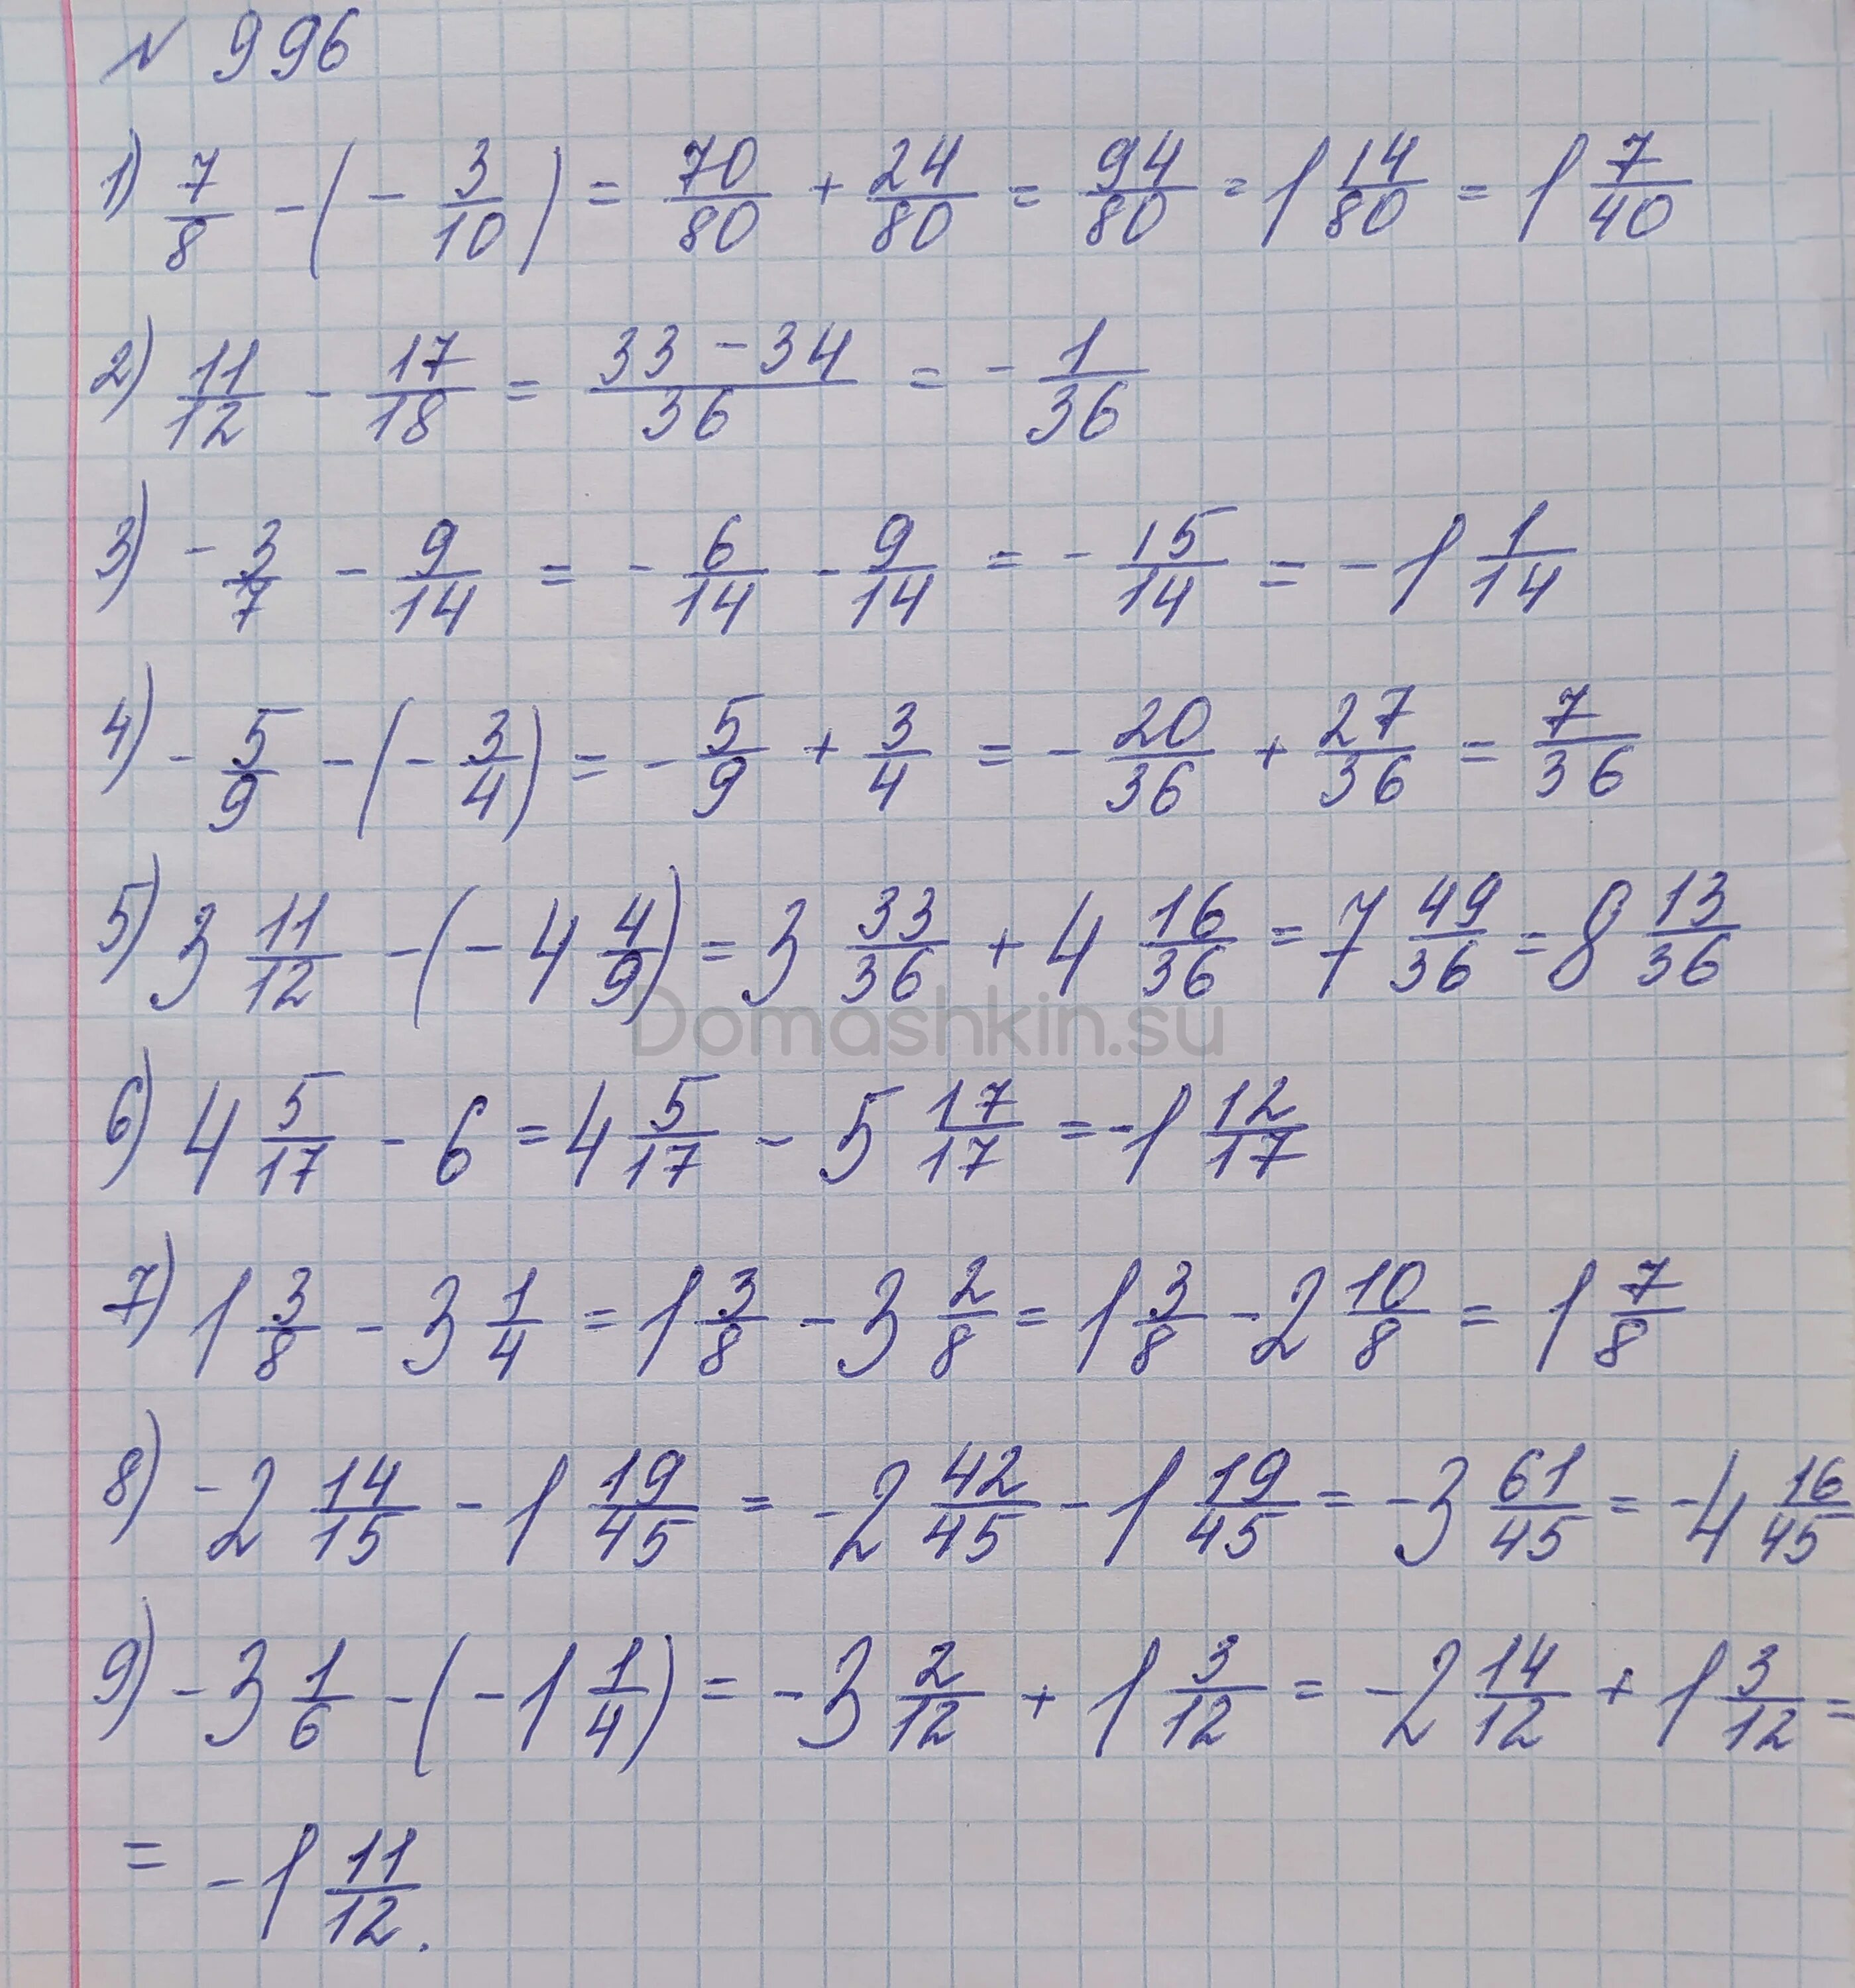 № 996
1) 7/8 - (- 3/10) = 70/80 + 24/80 = 94/80 = 1 14/80 = 1 7/40
2) 11/12 - 17/18 = (33 - 34)/36 = - 1/36
3) - 3/7 - 9/14 = - 6/14 - 9/14 = - 15/14 = - 1 1/14
4) - 5/9 - (- 3/4) = - 5/9 + 3/4 = - 20/36 + 27/36 = 7/36
5) 3 11/12 - (- 4 4/9) = 3 33/36 + 4 16/36 = 7 49/36 = 8 13/36
Domashkin.su
6) 4 5/17 - 6 = 4 5/17 - 5 17/17 = - 1 12/17
7) 1 3/8 - 3 1/4 = 1 3/8 - 3 2/8 = 1 3/8 - 2 10/8 = 1 7/8
8) - 2 14/15 - 1 19/45 = - 2 42/45 - 1 19/45 = - 3 61/45 = - 4 16/45
9) - 3 1/6 - (- 1 1/4) = - 3 2/12 + 1 3/12 = - 2 14/12 + 1 3/12 =
= - 1 11/12.